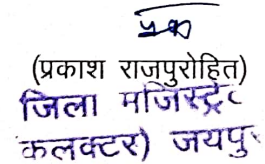 (प्रकाश राजपुरोहित)
जिला मजिस्ट्रेट
कलक्टर) जयपुर